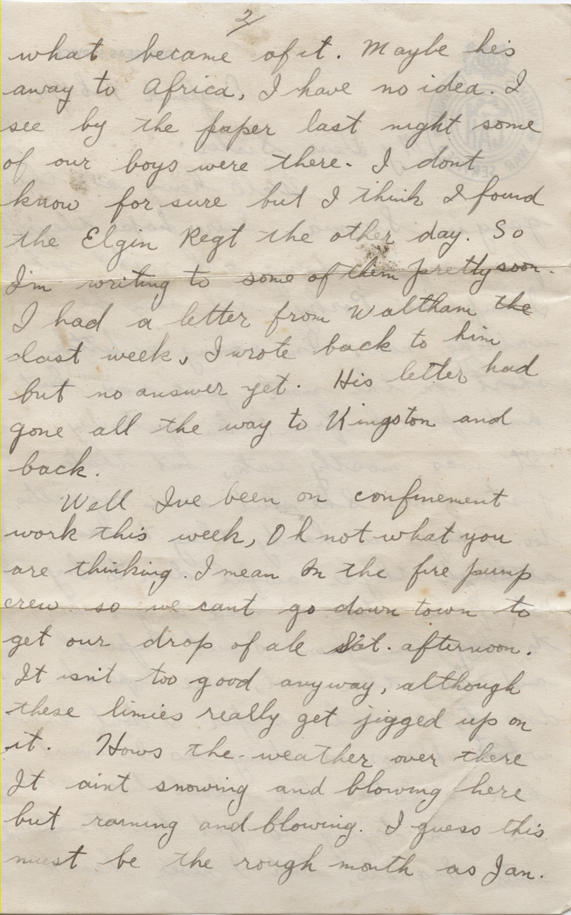 2/
what became of it. Maybe his
away to Africa, I have no idea. I
see by the paper last night some
of our boys were there. I dont
know for sure but I think I found
the Elgin Regt the other day. So
I'm writing to some of them pretty soon.
I had a letter from Waltham the
last week, I wrote back to him
but no answer yet. His letter had
gone all the way to Kingston and
back.
Well I've been on confinement
work this week, Oh not what you
are thinking. I mean on the fire pump
crew so we cant go down town to
get our drop of ale Sat. afternoon.
It isn't too good anyway, although
these limies really get jigged up on
it. Hows the weather over there
It aint snowing and blowing here
but raining and blowing. I guess this
must be the rough month as Jan.